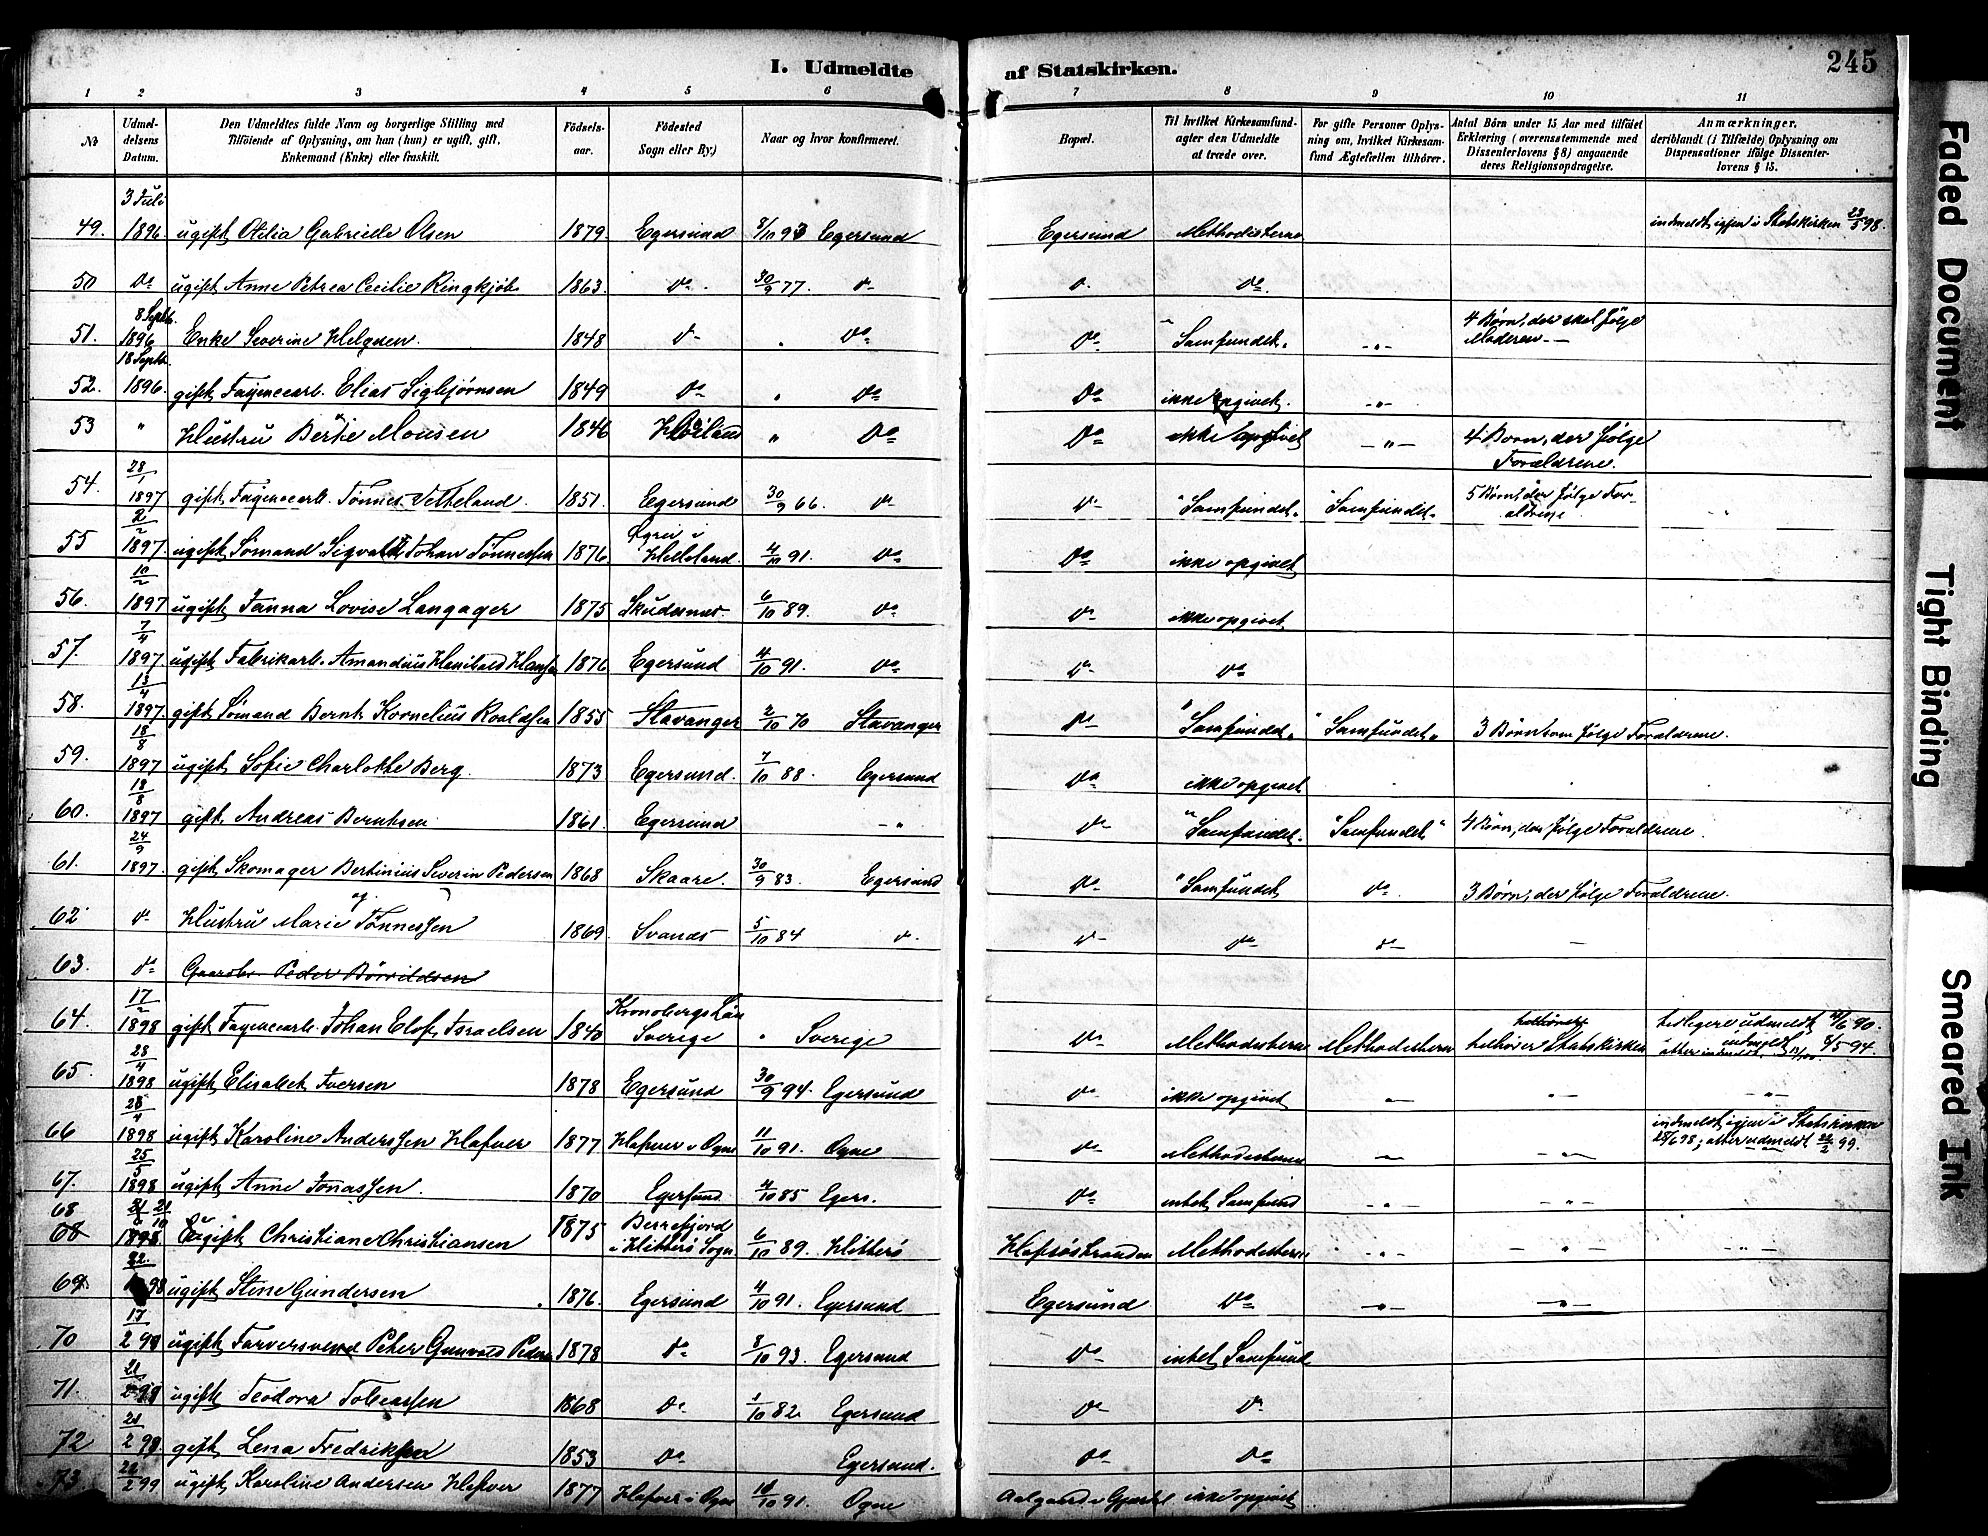 I. Udmeldte af Statskirken. 245
1 2 3 4 5 6 7 8 9 10 11
№ Udmeldelsens Datum. Den Udmeldtes fulde Navn og borgerlige Stilling med Tilföiende af Oplysning, om han (hun) er ugift, gift, Enkemand (Enke) eller fraskilt. Födselsaar. Födested Sogn eller By.) Naar og hvor konfirmeret. Bopæl. Til hvilket Kirkesamfundagter den Udmeldte at træde over. For gifte Personer Oplysning om, hvilket Kirkesamfund Ægtefællen tilhörer. Antal Börn under 15 Aar med tilföiet Erklæring (overensstemmende med Dissenterlovens § 8) angaaende deres Religionsopdragelse. Anmærkninger, deriblandt (i Tilfælde) Oplysning om Dispensationer ifölge Dissenterlovens § 15.
49. 3 Juli 1896 ugift Otilia Gabrielle Olsen 1879 Egersund 8/10 93 Egersund Egersund Methodisterne indmeldt igjen i Statskirken 23/5 98.
50 Do ugift Anne Petrea Cecilie Ringkjøb 1863 Do 30/9 77. Do Do Do
51. 8 Septb. 1896 Enke Severine Helgsen 1848 Do " Do Do "Samfundet" -"- 4 Børn, der skal følge Moderen -
52. 18 Septb. 1896. gift Fayencearb. Elias Sigbjørnsen 1849 Do " Do Do ikke opgivet. -"-
53 " Hustru Berte Monsen 1846 Høiland " Do Do ikke opgivet -"- 4 Børn, der følge Forældrene.
54. 28/1 1897 gift Fayencearb. Tønnes Tetteland 1851. Egersund 30/9 66 Do Do "Samfundet" "Samfundet" 5 Børn, der følge Forældrene
55 2/2 1897. ugift Sømand Sigvald Johan Tønnessen 1876 Øgrei i Helleland. 4/10 91. Do Do ikke opgivet
56. 10/2 1897 ugift Janna Lovise Langager 1875 Skudesnes 6/10 89. Do Do ikke opgivet
57. 7/4 1897 ugift Fabrikarb. Amandius Hanibald Hansen 1876 Egersund 4/10 91. Do Do Do
58. 13/4 1897 gift Sømand Bernt Kornelius Roaldsen 1855 Stavanger 2/10 70 Stavanger Do "Samfundet" "Samfundet" 3 Børn som følge Forældrene.
59. 18/8 1897 ugift Sofie Charlotte Berg 1873 Egersund. 7/10 88. Egersund Do ikke opgivet
60. 18/8 1897 gift Andreas Berntsen 1861. Egersund - " Do "Samfundet" "Samfundet" 4 Børn, der følge Forældrene.
61. 24/9 1897. gift Skomager Bertinius Severin Pedersen 1868 Skaare. 30/9 83. Egersund Do "Samfundet Do 3 Børn, der følge Forældrene.
62 Do og Hustru Marie Tønnessen 1869 Svanes 5/10 84 Do Do Do Do -
63. Do Gaardbr. Peder Børrildsen
64. 17/2 1898 gift Fayencearb. Johan Elof Israelsen 1840 Kronobergs Län Sverige " Sverige Do Methodisterne Methodisterne tilhører Statskirken tidligere udmeldt 21/6 90. indmeldt 8/5 94.
65. 28/4 1898 ugift Elisabet Iversen 1878 Egersund 30/9 94. Egersund Do ikke opgivet -"- -"- -"-
66 28/4 1898 ugift Karoline Anderssen Hafver 1877 Hafver i Ogne 11/10 91. Ogne Do Methodisterne -"- -"- indmeldt igjen i Statskirken 28/6 98; atter udmeldt 22/2 99.
67. 25/5 1898 ugift Anne Jonassen. 1870 Egersund. 4/10 85 Egers. Do intet Samfund -"- -"-
68 21/10 1898 ugift Christiane Christiansen 1875 Berrefjord i Hitterø Sogn 6/10 89. Hitterø Hafsøstranden Methodisterne -"- -"- -"-
69. 22. 98 ugift Stine Gundersen 1876. Egersund 4/10 91. Egersund Egersund Do -"- -"-
70 17/2 99 ugift Farversvend Peter Gunvald Pedersen 1878 Do 8/10 93. Egersund Do intet Samfund
71. 21/2 99 ugift Teodora Tobiassen 1868 Do 1/10 82 Egersund Do Do
72 21/2 99. gift Lena Fredriksen 1853 Do Egersund. Do Do
73. 22/2 99 ugift Karoline Andersen Hafver 1877 Hafver i Ogne 10/10 91. Ogne Aalgaard i Gjestal ikke opgivet
Faded Document
Tight Binding
Smeared Ink